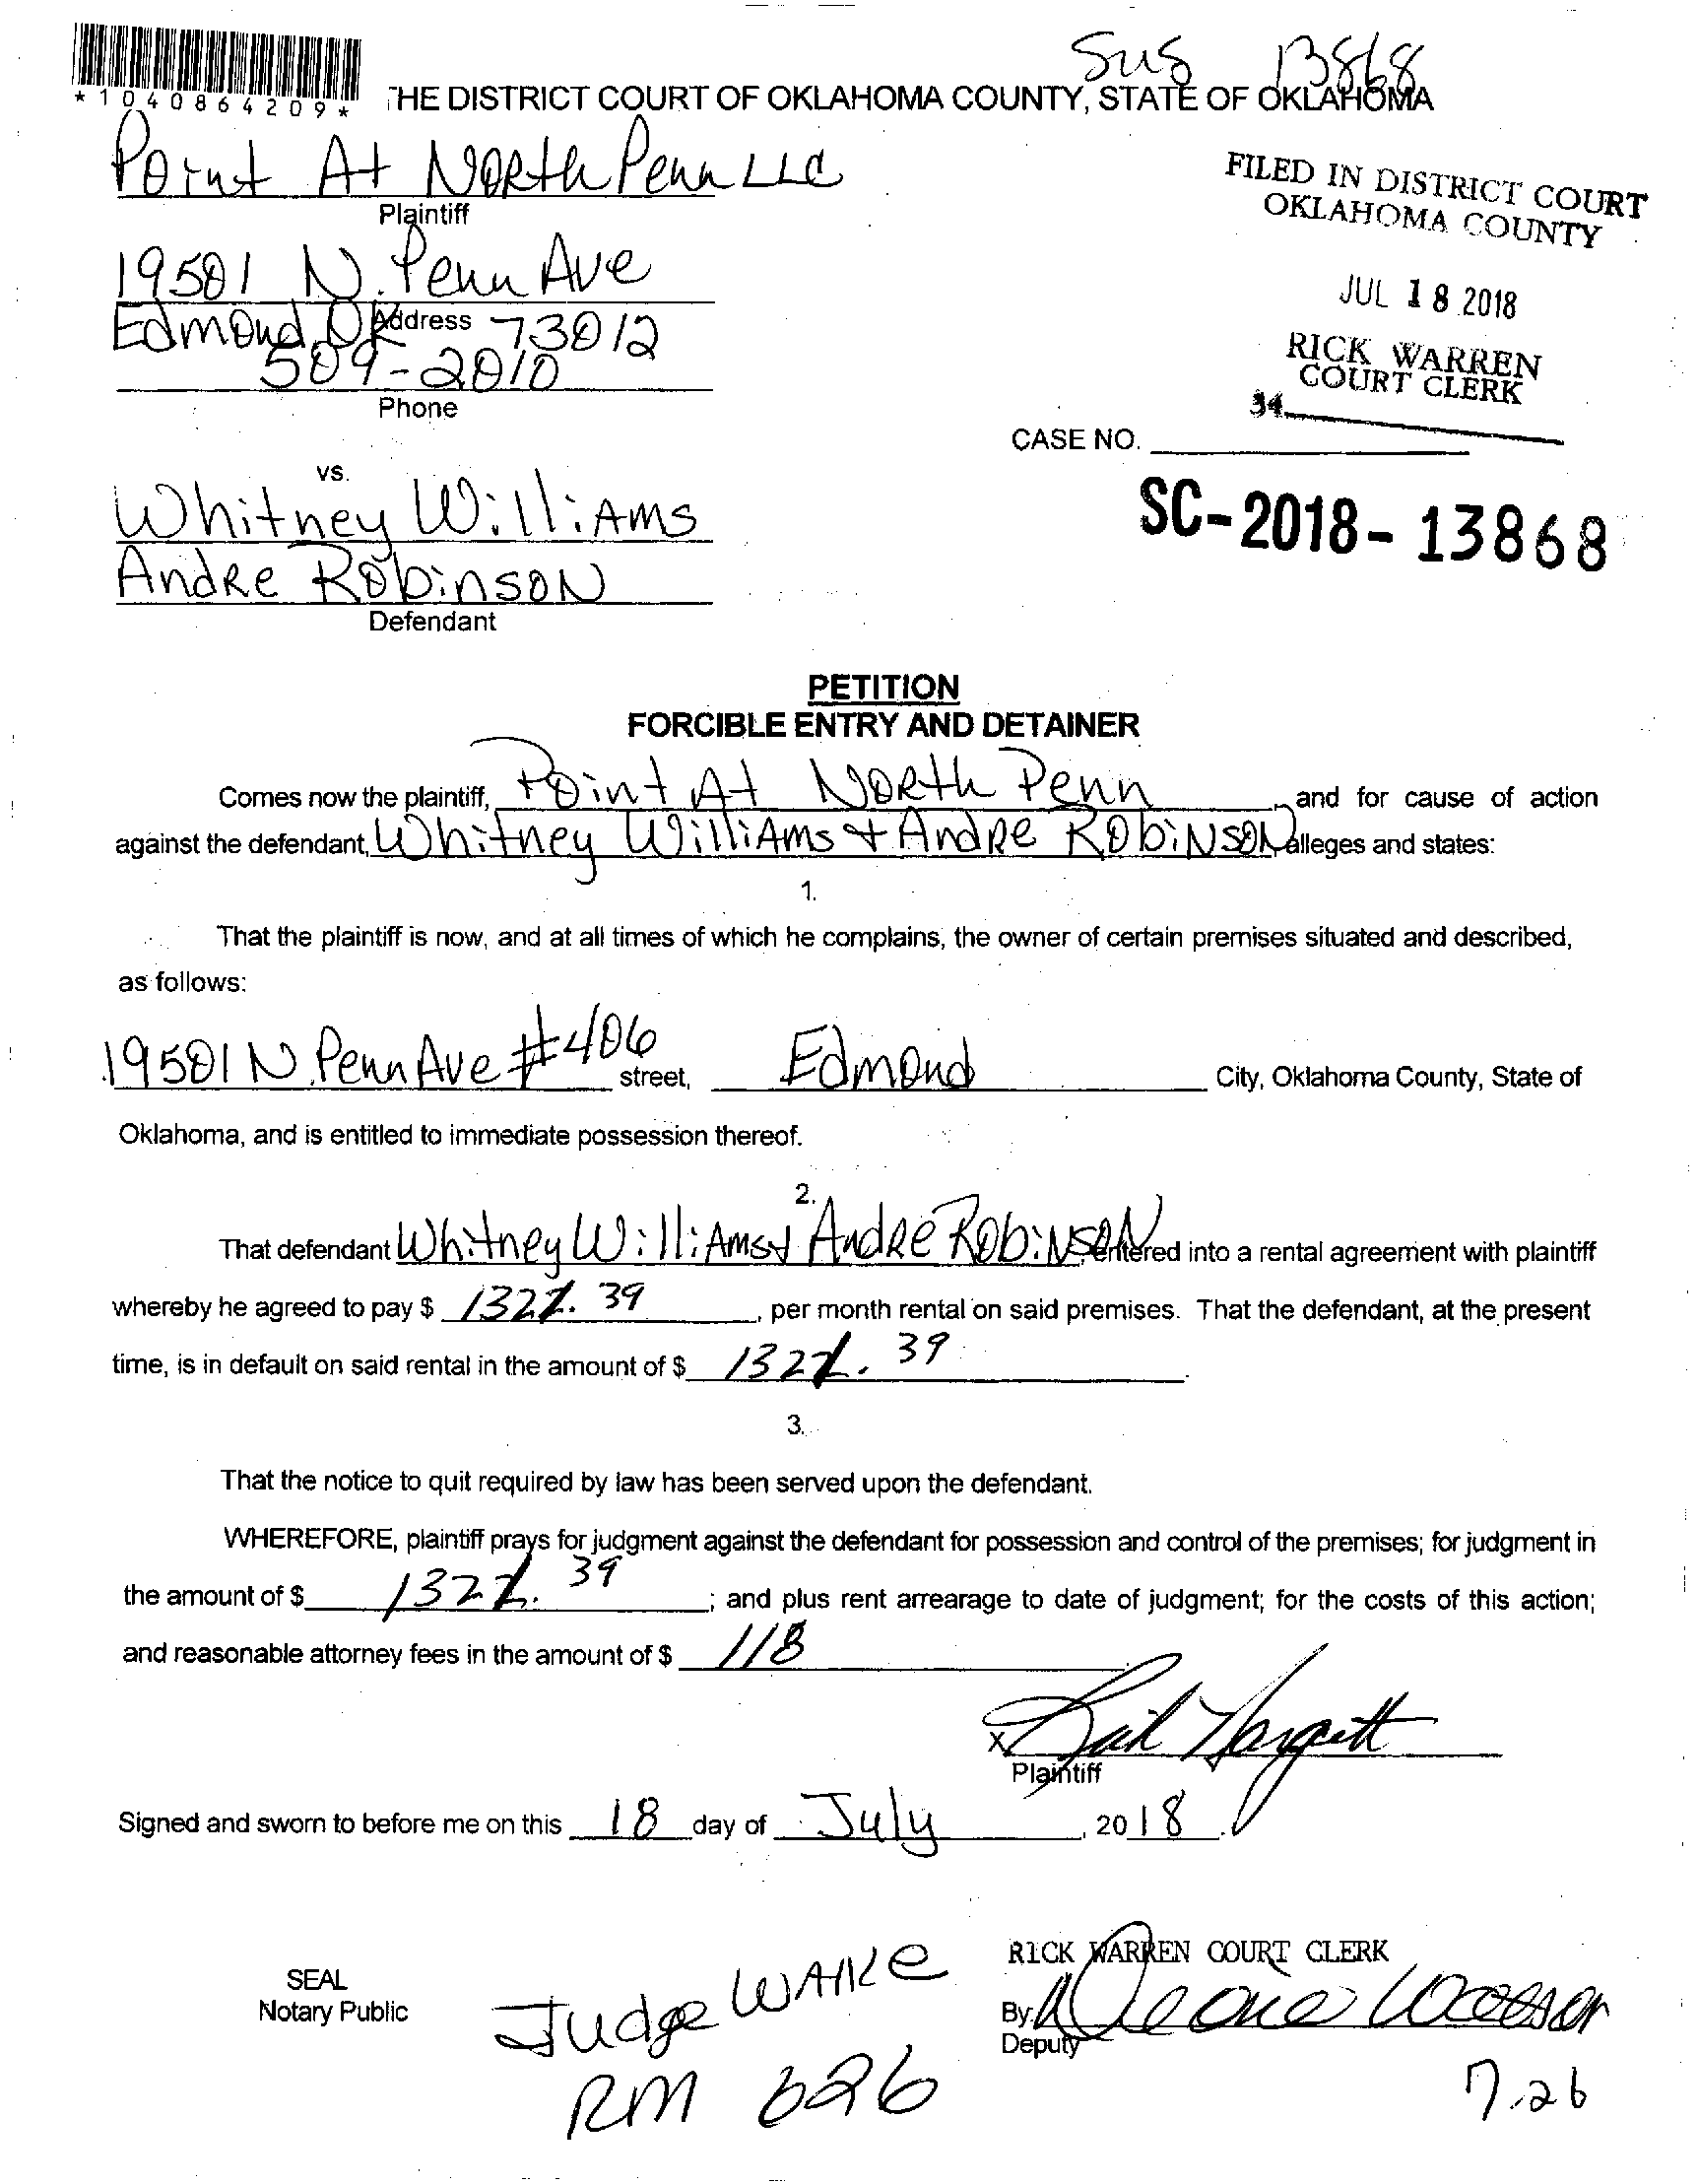 Sus 13868
*1040864209*
THE DISTRICT COURT OF OKLAHOMA COUNTY, STATE OF OKLAHOMA
Point At North Penn LLC
Plaintiff
19501 N. Penn Ave
Edmond, OK 73012
Address
509-2010
Phone
FILED IN DISTRICT COURT
OKLAHOMA COUNTY
JUL 18 2018
RICK WARREN
COURT CLERK
34
CASE NO.
SC-2018-13868
vs.
Whitney Williams
Andre Robinson
Defendant
PETITION
FORCIBLE ENTRY AND DETAINER
Comes now the plaintiff, Point At North Penn and for cause of action
against the defendant, Whitney Williams + Andre Robinson alleges and states:
1.
That the plaintiff is now, and at all times of which he complains, the owner of certain premises situated and described,
as follows:
19501 N. Penn Ave #406 street, Edmond City, Oklahoma County, State of
Oklahoma, and is entitled to immediate possession thereof.
2.
That defendant Whitney Williams + Andre Robinson, entered into a rental agreement with plaintiff
whereby he agreed to pay $ 1322.39, per month rental on said premises. That the defendant, at the present
time, is in default on said rental in the amount of $ 1322.39.
3.
That the notice to quit required by law has been served upon the defendant.
WHEREFORE, plaintiff prays for judgment against the defendant for possession and control of the premises; for judgment in
the amount of $ 1322.39; and plus rent arrearage to date of judgment; for the costs of this action;
and reasonable attorney fees in the amount of $ 118
x Gail Hargett
Plaintiff
Signed and sworn to before me on this 18 day of July, 2018.
SEAL
Notary Public
Judge WAlke
RM 626
RICK WARREN COURT CLERK
By
Deputy
7.26